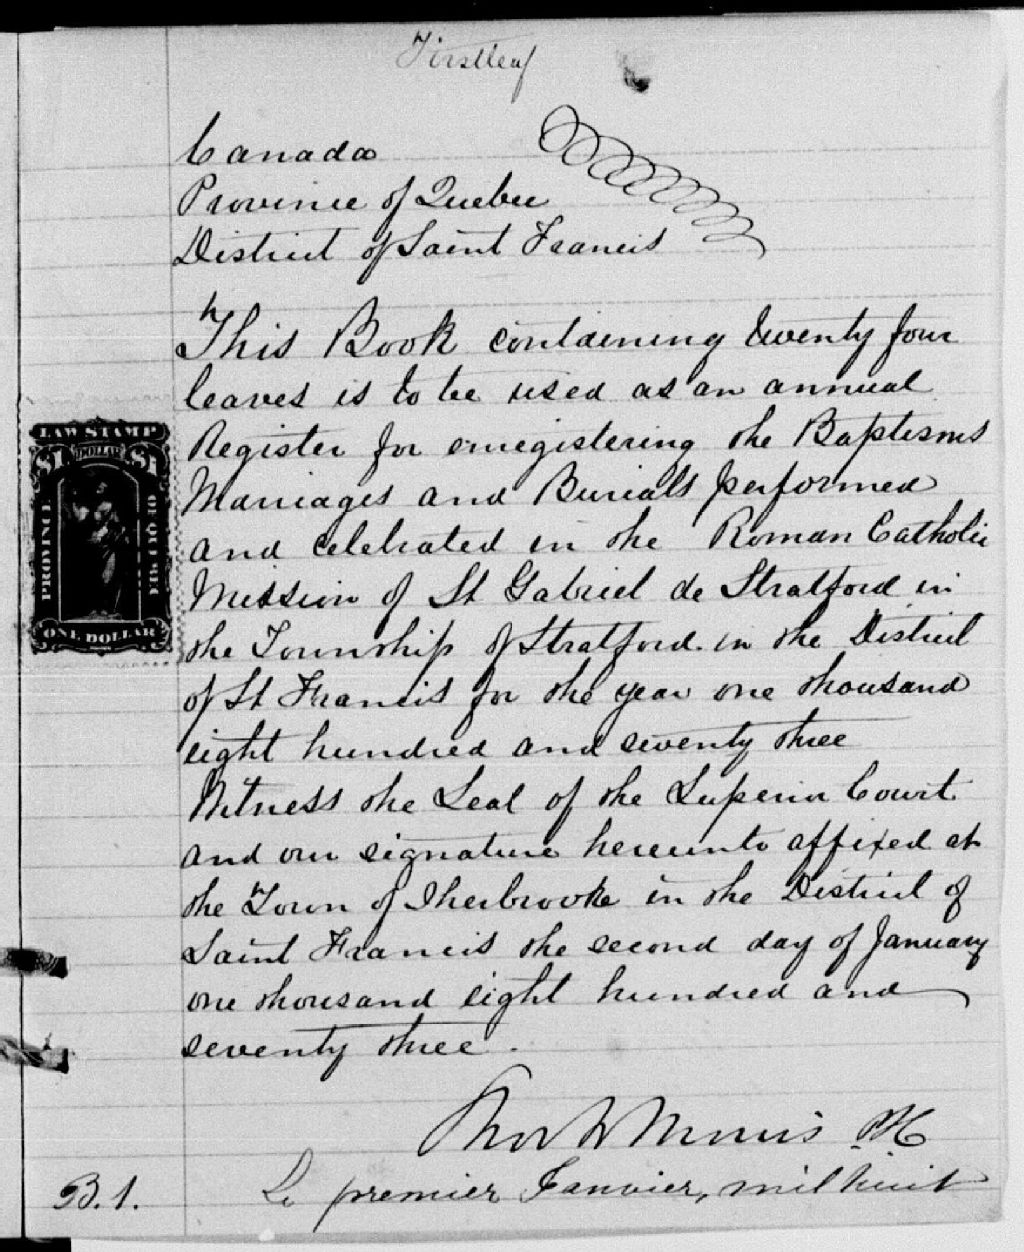 First leaf
Canada
Province of Quebec
District of Saint Francis
This Book containing twenty four
leaves is to be used as an annual
Register for enregistering the Baptisms
Marriages and Burials performed
and celebrated in the Roman Catholic
Mission of St Gabriel de Stratford in
the Township of Stratford in the District
of St Francis for the year one thousand
eight hundred and seventy three
Witness the Seal of the Superior Court
and our signature hereunto affixed at
the Town of Sherbrooke in the District of
Saint Francis the second day of January
one thousand eight hundred and
seventy three.
LAW STAMP
1 DOLLAR 1
PROVINCE OF QUEBEC
ONE DOLLAR
Morris
B.1.
Le premier Janvier, mil huit